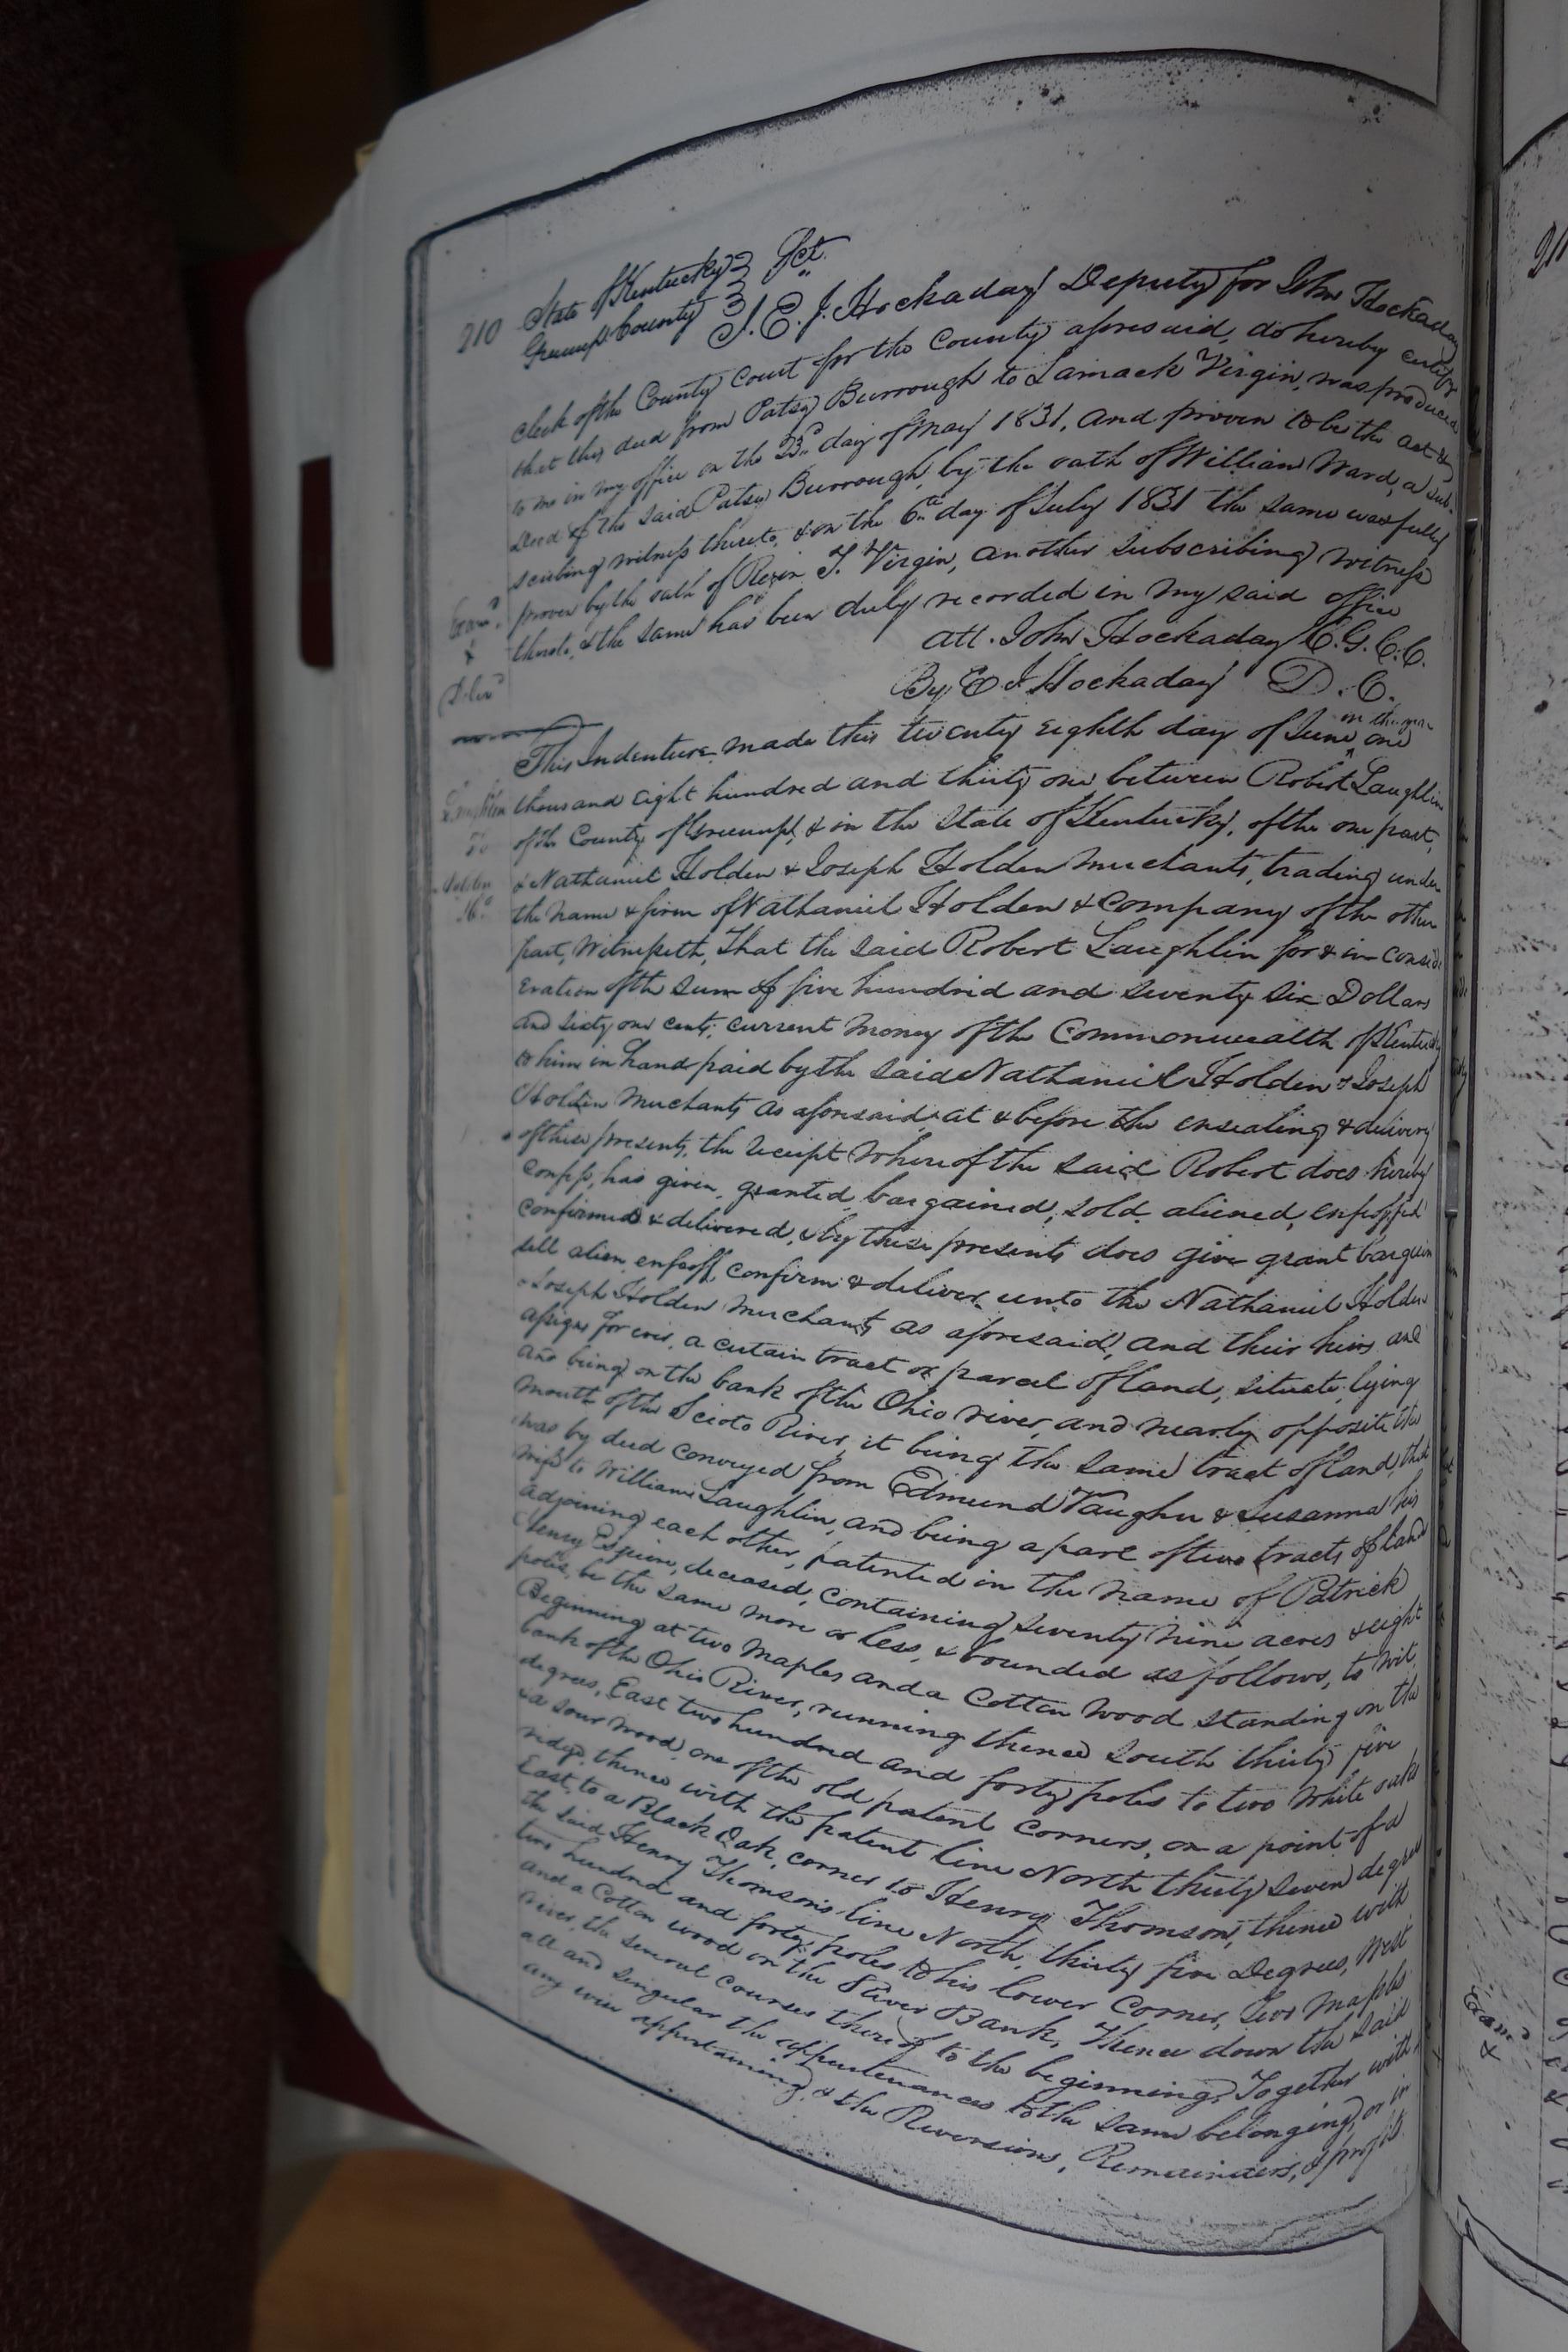 210 State of Kentucky } Sct.
Greenup County }
I. E. J. Hockaday Deputy for John Hockaday
clerk of the County Court for the County aforesaid, do hereby certify
that this deed from Patsy Burrough to Lamack Virgin, was produced
to me in my office on the 23d day of May 1831, and proven to be the act &
Deed of the said Patsy Burrough, by the oath of William Ward, a sub-
scribing witness thereto, & on the 6th day of July 1831 the same was fully
proven by the oath of Rezin T. Virgin, another subscribing witness
thereto, & the same has been duly recorded in my said office
Exam.d
&
Deliv.d
att. John Hockaday C.G.C.C.
By E J Hockaday D.C.
This Indenture made this twenty eighth day of June in the year one
Laughlin
To
Holden
thousand eight hundred and thirty one between Robert Laughlin
of the County of Greenup, & in the State of Kentucky, of the one part,
& Nathaniel Holden & Joseph Holden Merchants, trading under
the name & firm of Nathaniel Holden & Company of the other
part, Witnesseth, That the said Robert Laughlin for & in consid
eration of the sum of five hundred and seventy six Dollars
and sixty one cents, current money of the Commonwealth of Kentucky
to him in hand paid by the said Nathaniel Holden & Joseph
Holden Merchants as aforesaid, at & before the ensealing & delivery
of these presents, the receipt whereof the said Robert does hereby
confess, has given, granted, bargained, sold, aliened, enfeoffed
confirmed & delivered, & by these presents does give grant bargain
sell alien, enfeoff, confirm & deliver unto the Nathaniel Holden
& Joseph Holden Merchants as aforesaid, and their heirs and
assigns for ever, a certain tract or parcel of land, situate, lying
and being on the bank of the Ohio river, and nearly opposite the
mouth of the Scioto River, it being the same tract of land, that
was by deed conveyed from Edmund Vaughn & Susanna his
wife to William Laughlin, and being a part of two tracts of land
adjoining each other, patented in the name of Patrick
Henry Esquire, deceased, containing seventy nine acres & eight
poles, be the same more or less, & bounded as follows, to wit,
Beginning at two Maples and a Cotton Wood standing on the
bank of the Ohio River, running thence South thirty five
degrees, East two hundred and forty poles to two White oaks
& a sour wood, one of the old patent corners, on a point of a
ridge, thence with the patent line North thirty seven degrees
East, to a Black Oak, corner to Henry Thomson, thence with
the said Henry Thomson's line North, thirty five Degrees, West
two hundred and forty poles to his lower Corner, two Maples
and a Cotton wood on the River Bank, Thence down the said
River, the several courses thereof to the beginning, Together with,
all and singular the appurtenances to the same belonging, or in
any wise appertaining, & the Reversions, Remainders, & profits